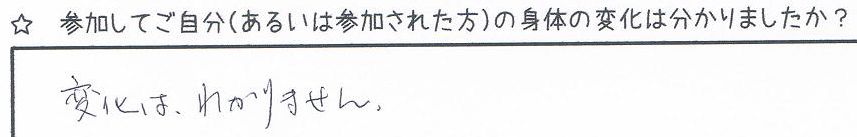 ☆ 参加してご自分(あるいは参加された方)の身体の変化は分かりましたか?
変化は、わかりません。